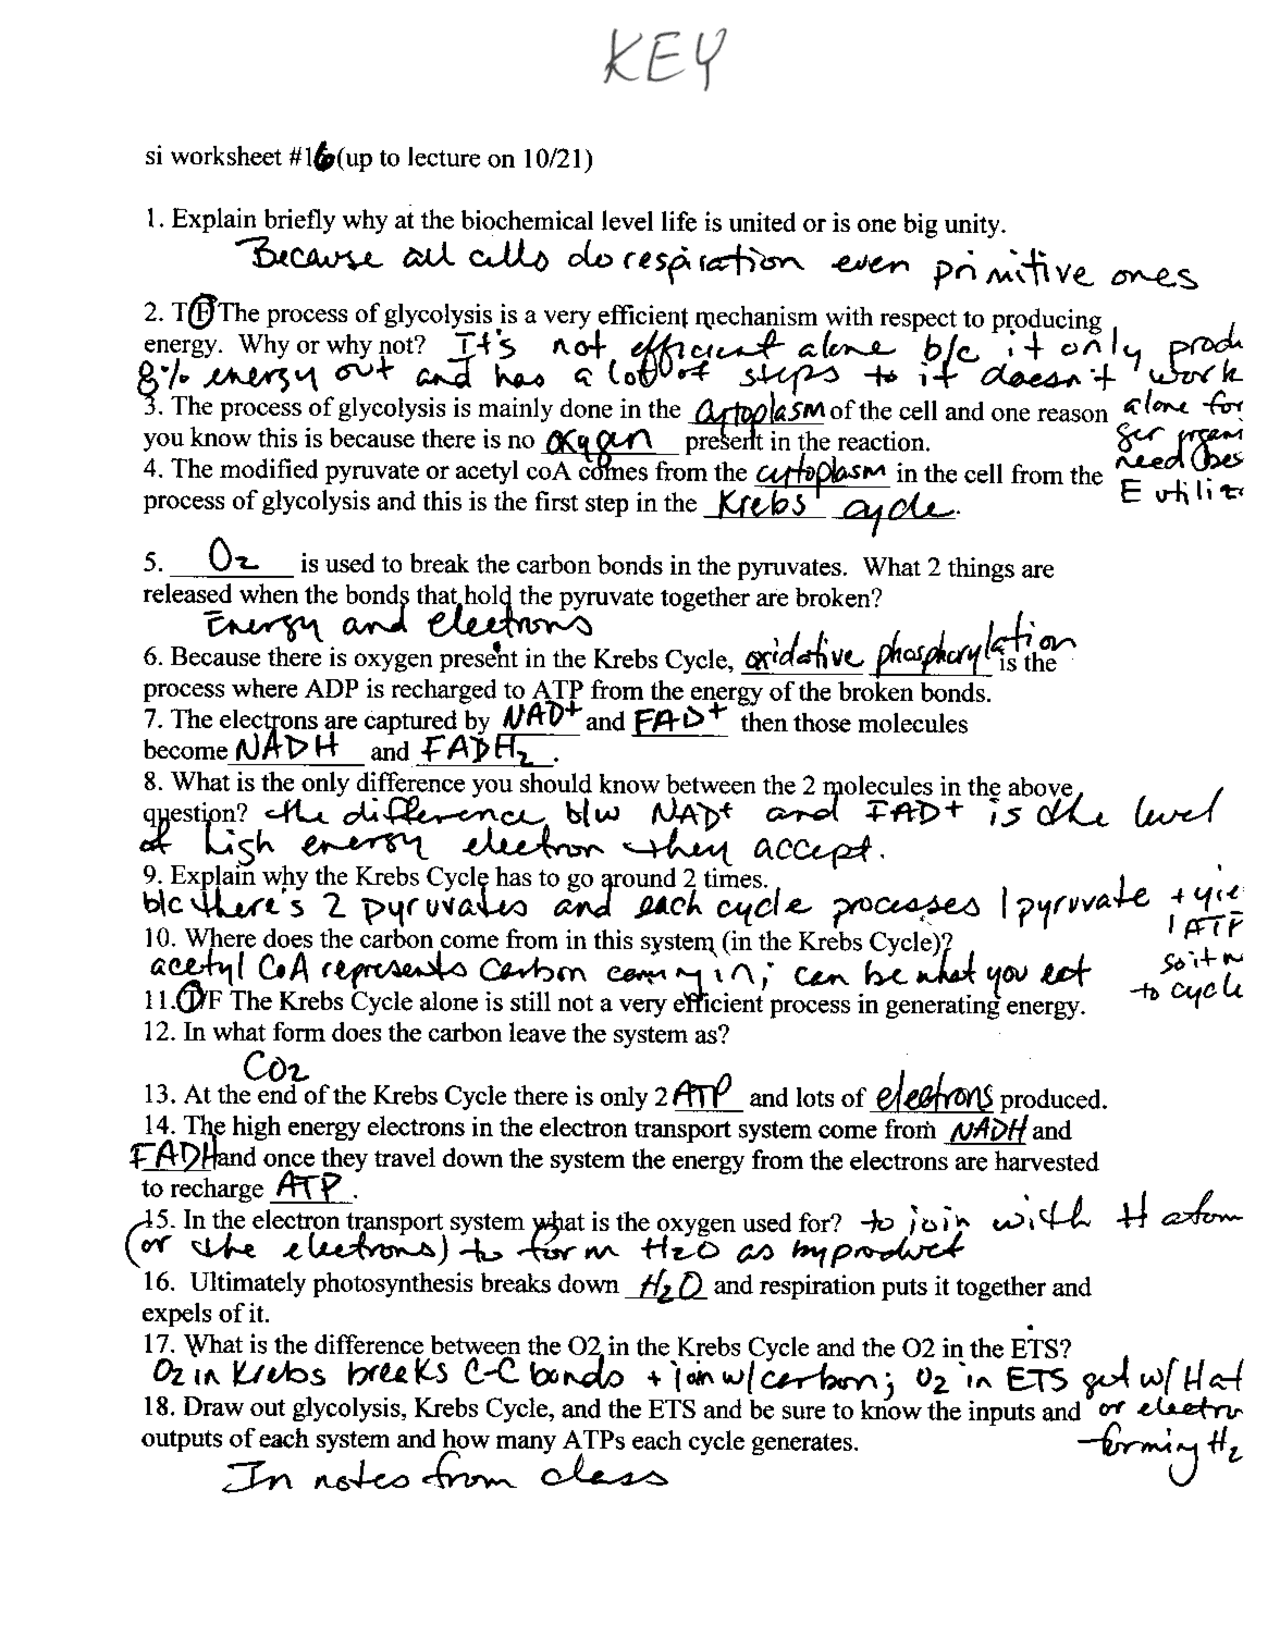 KEY
si worksheet #16 (up to lecture on 10/21)
1. Explain briefly why at the biochemical level life is united or is one big unity.
Because all cells do respiration even primitive ones
2. T/F The process of glycolysis is a very efficient mechanism with respect to producing
energy. Why or why not? It's not efficient alone b/c it only prod
8% energy out and has a lot of steps to it doesn't work
3. The process of glycolysis is mainly done in the cytoplasm of the cell and one reason alone for
you know this is because there is no oxygen present in the reaction.
4. The modified pyruvate or acetyl coA comes from the cytoplasm in the cell from the need
process of glycolysis and this is the first step in the Krebs cycle. E utiliz
5. O2 is used to break the carbon bonds in the pyruvates. What 2 things are
released when the bonds that hold the pyruvate together are broken?
Energy and electrons
6. Because there is oxygen present in the Krebs Cycle, oxidative phosphorylation is the
process where ADP is recharged to ATP from the energy of the broken bonds.
7. The electrons are captured by NAD+ and FAD+ then those molecules
become NADH and FADH2.
8. What is the only difference you should know between the 2 molecules in the above
question? the difference b/w NAD+ and FAD+ is the level
of high energy electron they accept.
9. Explain why the Krebs Cycle has to go around 2 times.
b/c there's 2 pyruvates and each cycle processes 1 pyruvate + yie
1 ATP
10. Where does the carbon come from in this system (in the Krebs Cycle)?
acetyl CoA represents carbon coming in; can be what you eat so it n
to cycle
11. T/F The Krebs Cycle alone is still not a very efficient process in generating energy.
12. In what form does the carbon leave the system as?
CO2
13. At the end of the Krebs Cycle there is only 2 ATP and lots of electrons produced.
14. The high energy electrons in the electron transport system come from NADH and
FADH and once they travel down the system the energy from the electrons are harvested
to recharge ATP.
15. In the electron transport system what is the oxygen used for? to join with H atom
(or the electrons) to form H2O as byproduct
16. Ultimately photosynthesis breaks down H2O and respiration puts it together and
expels of it.
17. What is the difference between the O2 in the Krebs Cycle and the O2 in the ETS?
O2 in Krebs breaks C-C bonds + join w/carbon; O2 in ETS get w/ H at
18. Draw out glycolysis, Krebs Cycle, and the ETS and be sure to know the inputs and or electro
outputs of each system and how many ATPs each cycle generates. forming H2
In notes from class